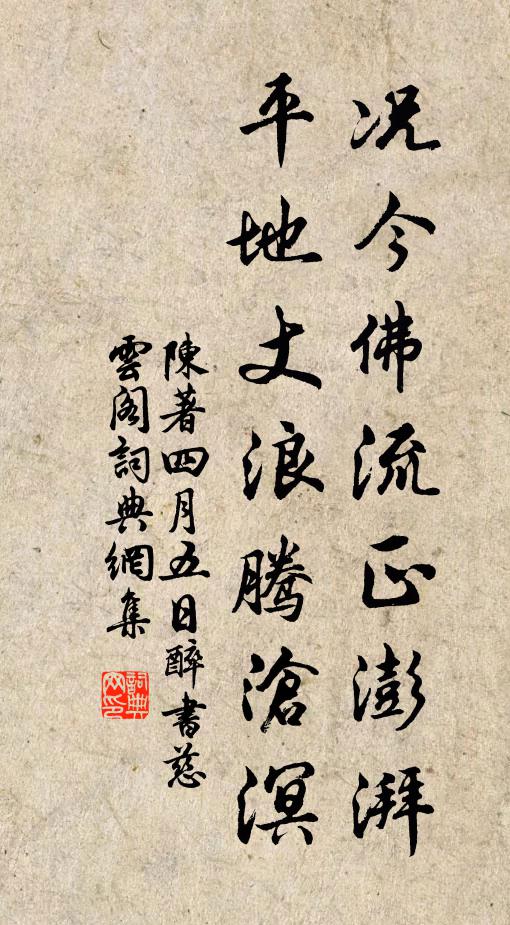 况今佛流正澎湃
平地丈浪腾滄溟
陳著四月五日醉書慈
雲阁詞典網集
詞典
网印